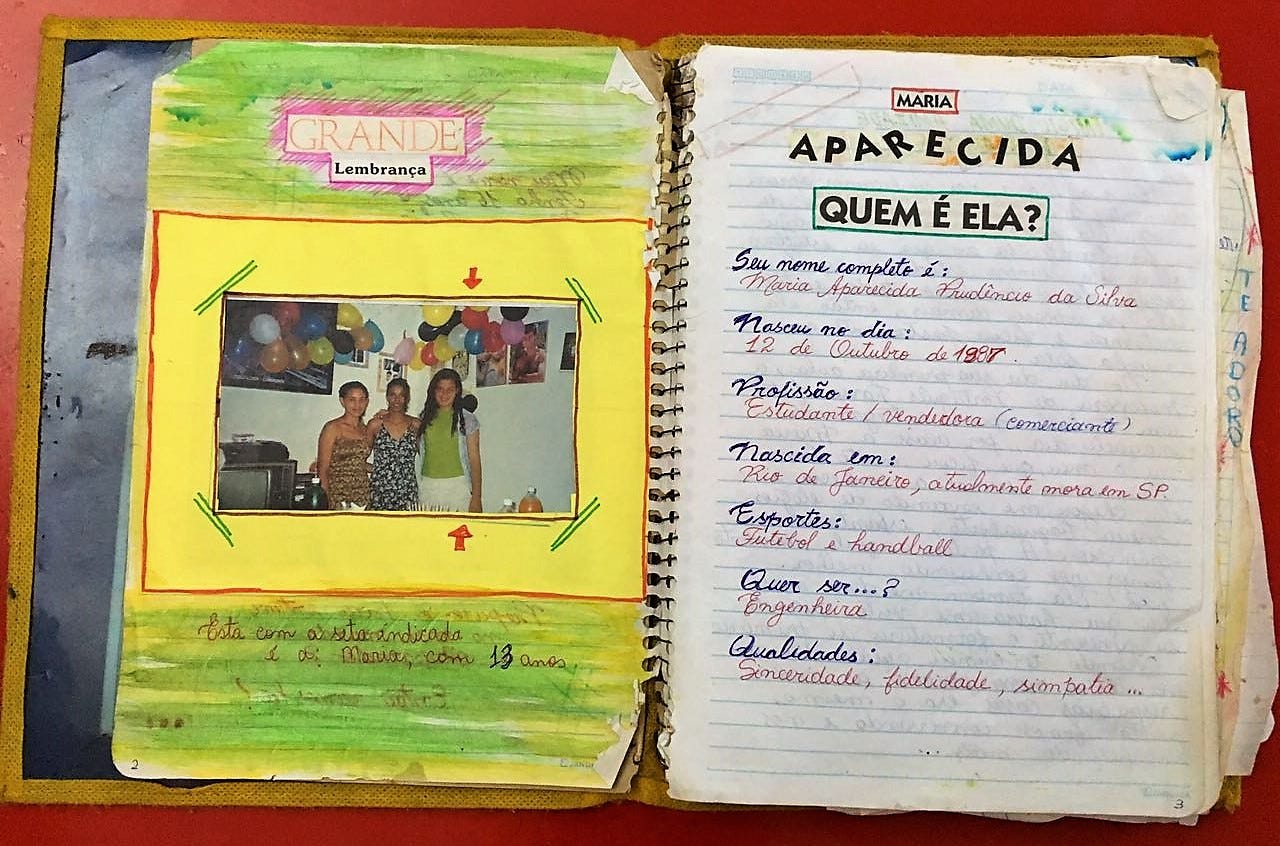 GRANDE
Lembrança
Esta com a seta indicada
é a: Maria, com 13 anos
2
MARIA
APARECIDA
QUEM É ELA?
Seu nome completo é:
Maria Aparecida Prudêncio da Silva
Nasceu no dia:
12 de Outubro de 1987.
Profissão:
Estudante / vendedora (comerciante)
Nascida em:
Rio de Janeiro, atualmente mora em SP.
Esportes:
Futebol e handball
Quer ser...?
Engenheira
Qualidades:
Sinceridade, fidelidade, simpatia ...
...
3
TE ADORO